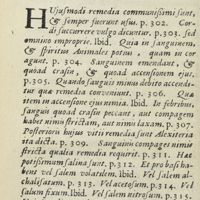 HUjusmodi remedia communissimi sunt,
& semper fuerunt usus. p. 302. Cor-
di succurrere vulgo dicuntur. p. 303. sed
omnino improprie. Ibid. Quia in sanguinem,
& spiritus dermales potius, quam in cor
agunt. p. 304. Sanguinem emendant, &
quoad crasin, & quoad accensionem ejus.
p. 305. Quando sanguis minus debito accenditur
quæ remedia conveniunt. p. 306. Quæ
item in accensione ejus nimia. Ibid. In febribus,
sanguis quoad crasin peccat, aut compagem
habet nimis strictam, aut nimis laxam. p. 307.
Posterioris hujus vitii remedia sunt Alexiteria
ita dicta. p. 309. Sanguinis compages nimis
stricta qualia remedia requirit. p. 311. Hæc
potissimum salina sunt. p. 312. Et pro basi ha-
bent vel salem volatilem. Ibid. Vel salem al-
chalisatum. p. 313. Vel acetosum. p. 314. Vel
salem fluxum. Ibid. Vel salem nitrosum. p. 315.